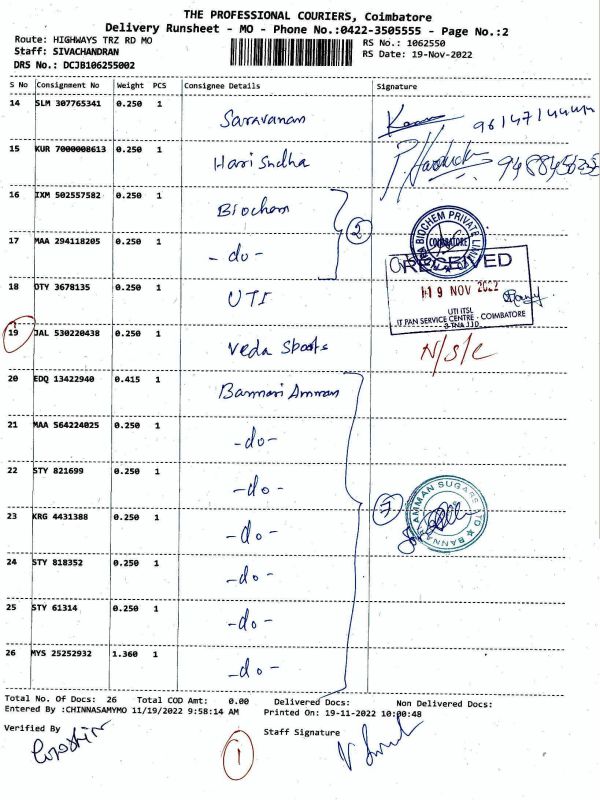 THE PROFESSIONAL COURIERS, Coimbatore
Delivery Runsheet - MO - Phone No.:0422-3505555 - Page No.:2
Route: HIGHWAYS TRZ RD MO
RS No.: 1062550
Staff: SIVACHANDRAN
RS Date: 19-Nov-2022
DRS No.: DCJB106255002
S No Consignment No Weight PCS Consignee Details Signature
14 SLM 307765341 0.250 1 Saravanan
15 KUR 7000008613 0.250 1 Hari Sudha
16 IXM 502557582 0.250 1 Biochem
2
BIOCHEM PRIVATE
COIMBATORE
17 MAA 294118205 0.250 1 -do-
RECEIVED
19 NOV 2022
18 OTY 3678135 0.250 1 UTI
UTI ITSL
IT PAN SERVICE CENTRE - COIMBATORE
19 JAL 530220438 0.250 1 Veda Sports N/S/L
20 EDQ 13422940 0.415 1 Bannari Amman
21 MAA 564224025 0.250 1 -do-
22 STY 821699 0.250 1 -do-
7
AMMAN SUGARS LTD
23 KRG 4431388 0.250 1 -do-
24 STY 818352 0.250 1 -do-
25 STY 61314 0.250 1 -do-
26 MYS 25252932 1.360 1 -do-
Total No. Of Docs: 26 Total COD Amt: 0.00 Delivered Docs: Non Delivered Docs:
Entered By :CHINNASAMYMO 11/19/2022 9:58:14 AM Printed On: 19-11-2022 10:00:48
Verified By
Staff Signature
1